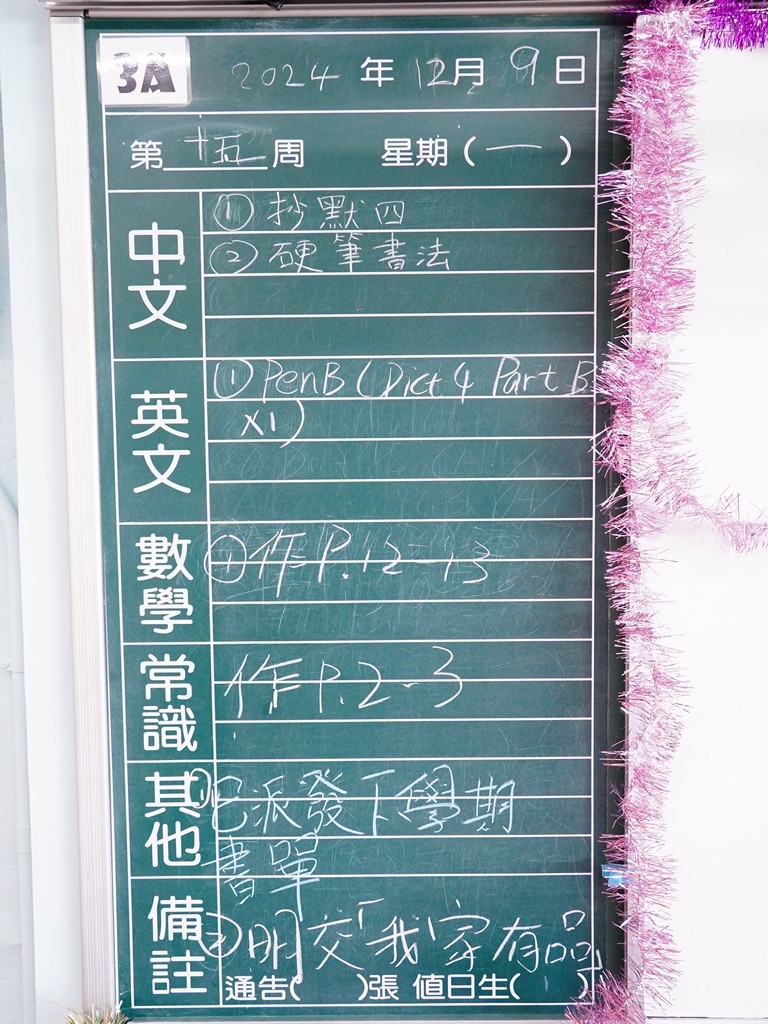 3A 2024 年 12月 9 日
第 十五 周 星期 ( 一 )
中文 ① 抄默四
② 硬筆書法
英文 ① PenB (Dict 4 Part B
X1)
數學 ① 作 P.12-13
常識 作 P.2-3
其他 ① 已派發下學期
書單
備註 ② 明交「我家有品」
通告( )張 值日生( )